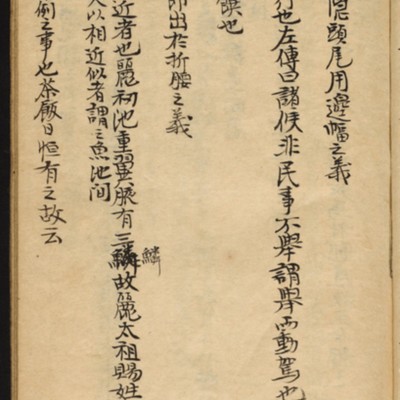 頭尾用邊幅之義
行也左傳曰諸侯非民事不舉謂舉而動駕也
也
出於折腰之義
近者也麗初池重翼腋有三鱗故麗太祖賜姓
鱗
以相近似者謂之魚池间
例之事也茶飯日恒有之故云